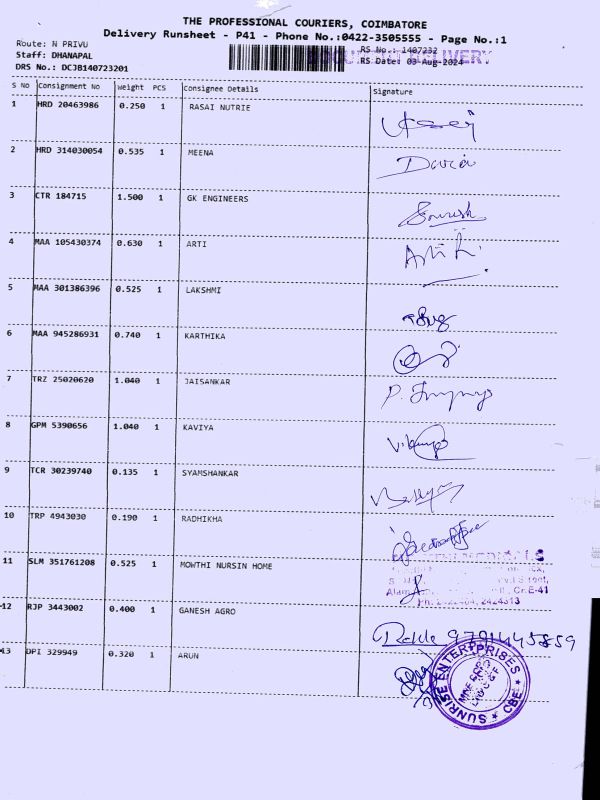 THE PROFESSIONAL COURIERS, COIMBATORE
Delivery Runsheet - P41 - Phone No.:0422-3505555 - Page No.:1
Route: N PRIVU
Staff: DHANAPAL
DRS No.: DCJB140723201
RS No.: 1407232
RS Date: 03-Aug-2024
DELIVERY
S No Consignment No Weight PCS Consignee Details Signature
1 HRD 20463986 0.250 1 RASAI NUTRIE
2 HRD 314030054 0.535 1 MEENA
3 CTR 184715 1.500 1 GK ENGINEERS
4 MAA 105430374 0.630 1 ARTI
5 MAA 301386396 0.525 1 LAKSHMI
6 MAA 945286931 0.740 1 KARTHIKA
7 TRZ 25020620 1.040 1 JAISANKAR
8 GPM 5390656 1.040 1 KAVIYA
9 TCR 30239740 0.135 1 SYAMSHANKAR
10 TRP 4943030 0.190 1 RADHIKHA
11 SLM 351761208 0.525 1 MOWTHI NURSIN HOME
12 RJP 3443002 0.400 1 GANESH AGRO
13 DPI 329949 0.320 1 ARUN
SUNRISE ENTERPRISES ★ CBE ★